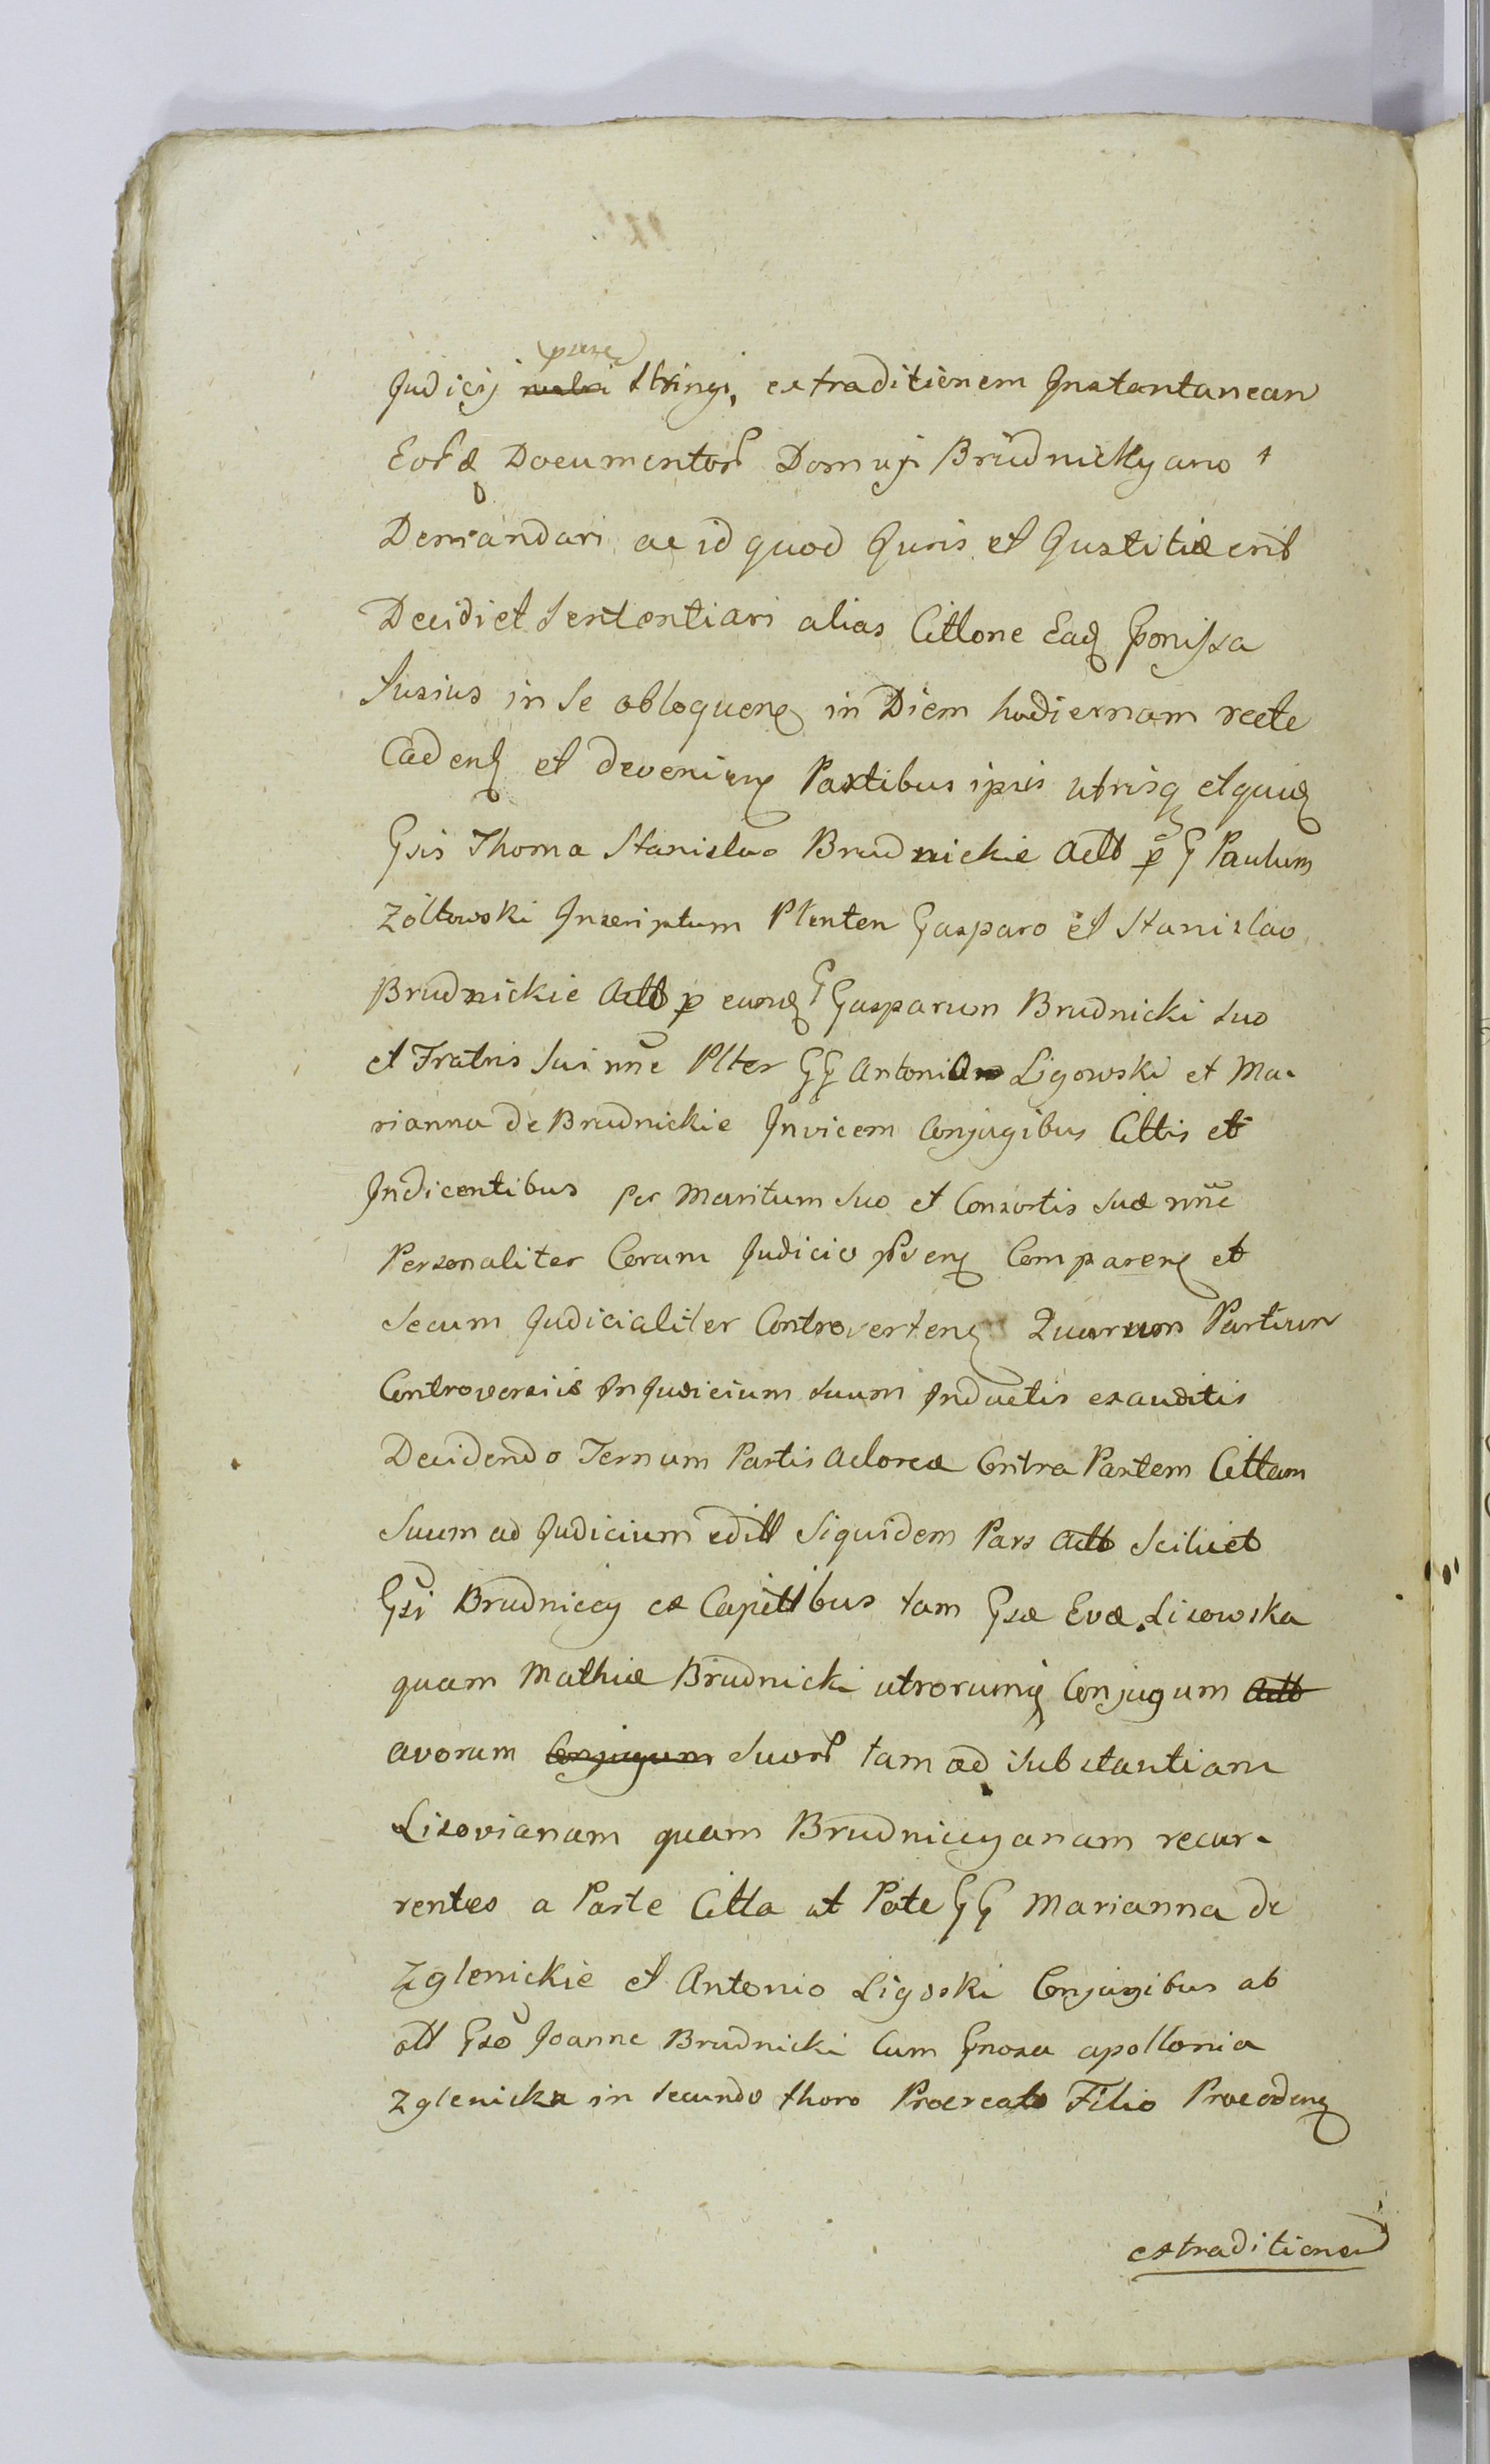 pure
Judicij stringi, extraditionem Instantanean
Eord Documentor Domuji Brudnickyano
Demandari ac id quod Juris et Justitiæ erit
Decidi et Sententiari alias Cittone Ead ponissa
Susius in Se obloquen in Diem hodiernam recte
Caden et devenien Partibus ipsis utrisq et quid
Gsis Thoma Stanislao Brudnickie Actt p G Paulum
Zółtowski Inscriptum Plenten Gasparo et Stanislao
Brudnickie Actt p eund G Gasparum Brudnicki suo
et Fratris sui nne Plter GG Antonio Ligowski et Ma-
rianna de Brudnickie Invicem Conjugibus Cittis et
Indicentibus per Maritum suo et Consortis suæ nne
Personaliter Coram Judicio pven Comparen et
Secum Judicialiter Controverten Quarum Partium
Controversiis In Judicium suum Inductis exauditis
Decidendo Ternum Partis actoreæ Contra Partem Cittam
Suum ad Judicium editt Siquidem Pars Actt Scilicet
Gsi Brudniccy ex Capittibus tam Gsæ Evæ Lisowska
quam Mathiæ Brudnicki utrorumq Conjugum Actt
avorum Conjugum Suor tam ad Substantiam
Lisovianam quam Brudniccyanam recur-
rentes a Parte Citta ut Pate GG Marianna de
Zglenickie et Antonio Ligoski Conjugibus ab
ott Gso Joanne Brudnicki Cum Gnosa apollonia
Zglenicka in secundo thoro Procreato Filio Proceden
extraditionem